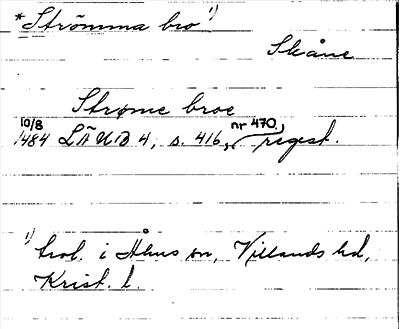 *Strömma bro 1)
Skåne
Strøme broe
10/8 1484 LÄUB 4, s. 416, nr 470, regest.
1) trol. i Åhus sn, Villands hd,
Krist. l